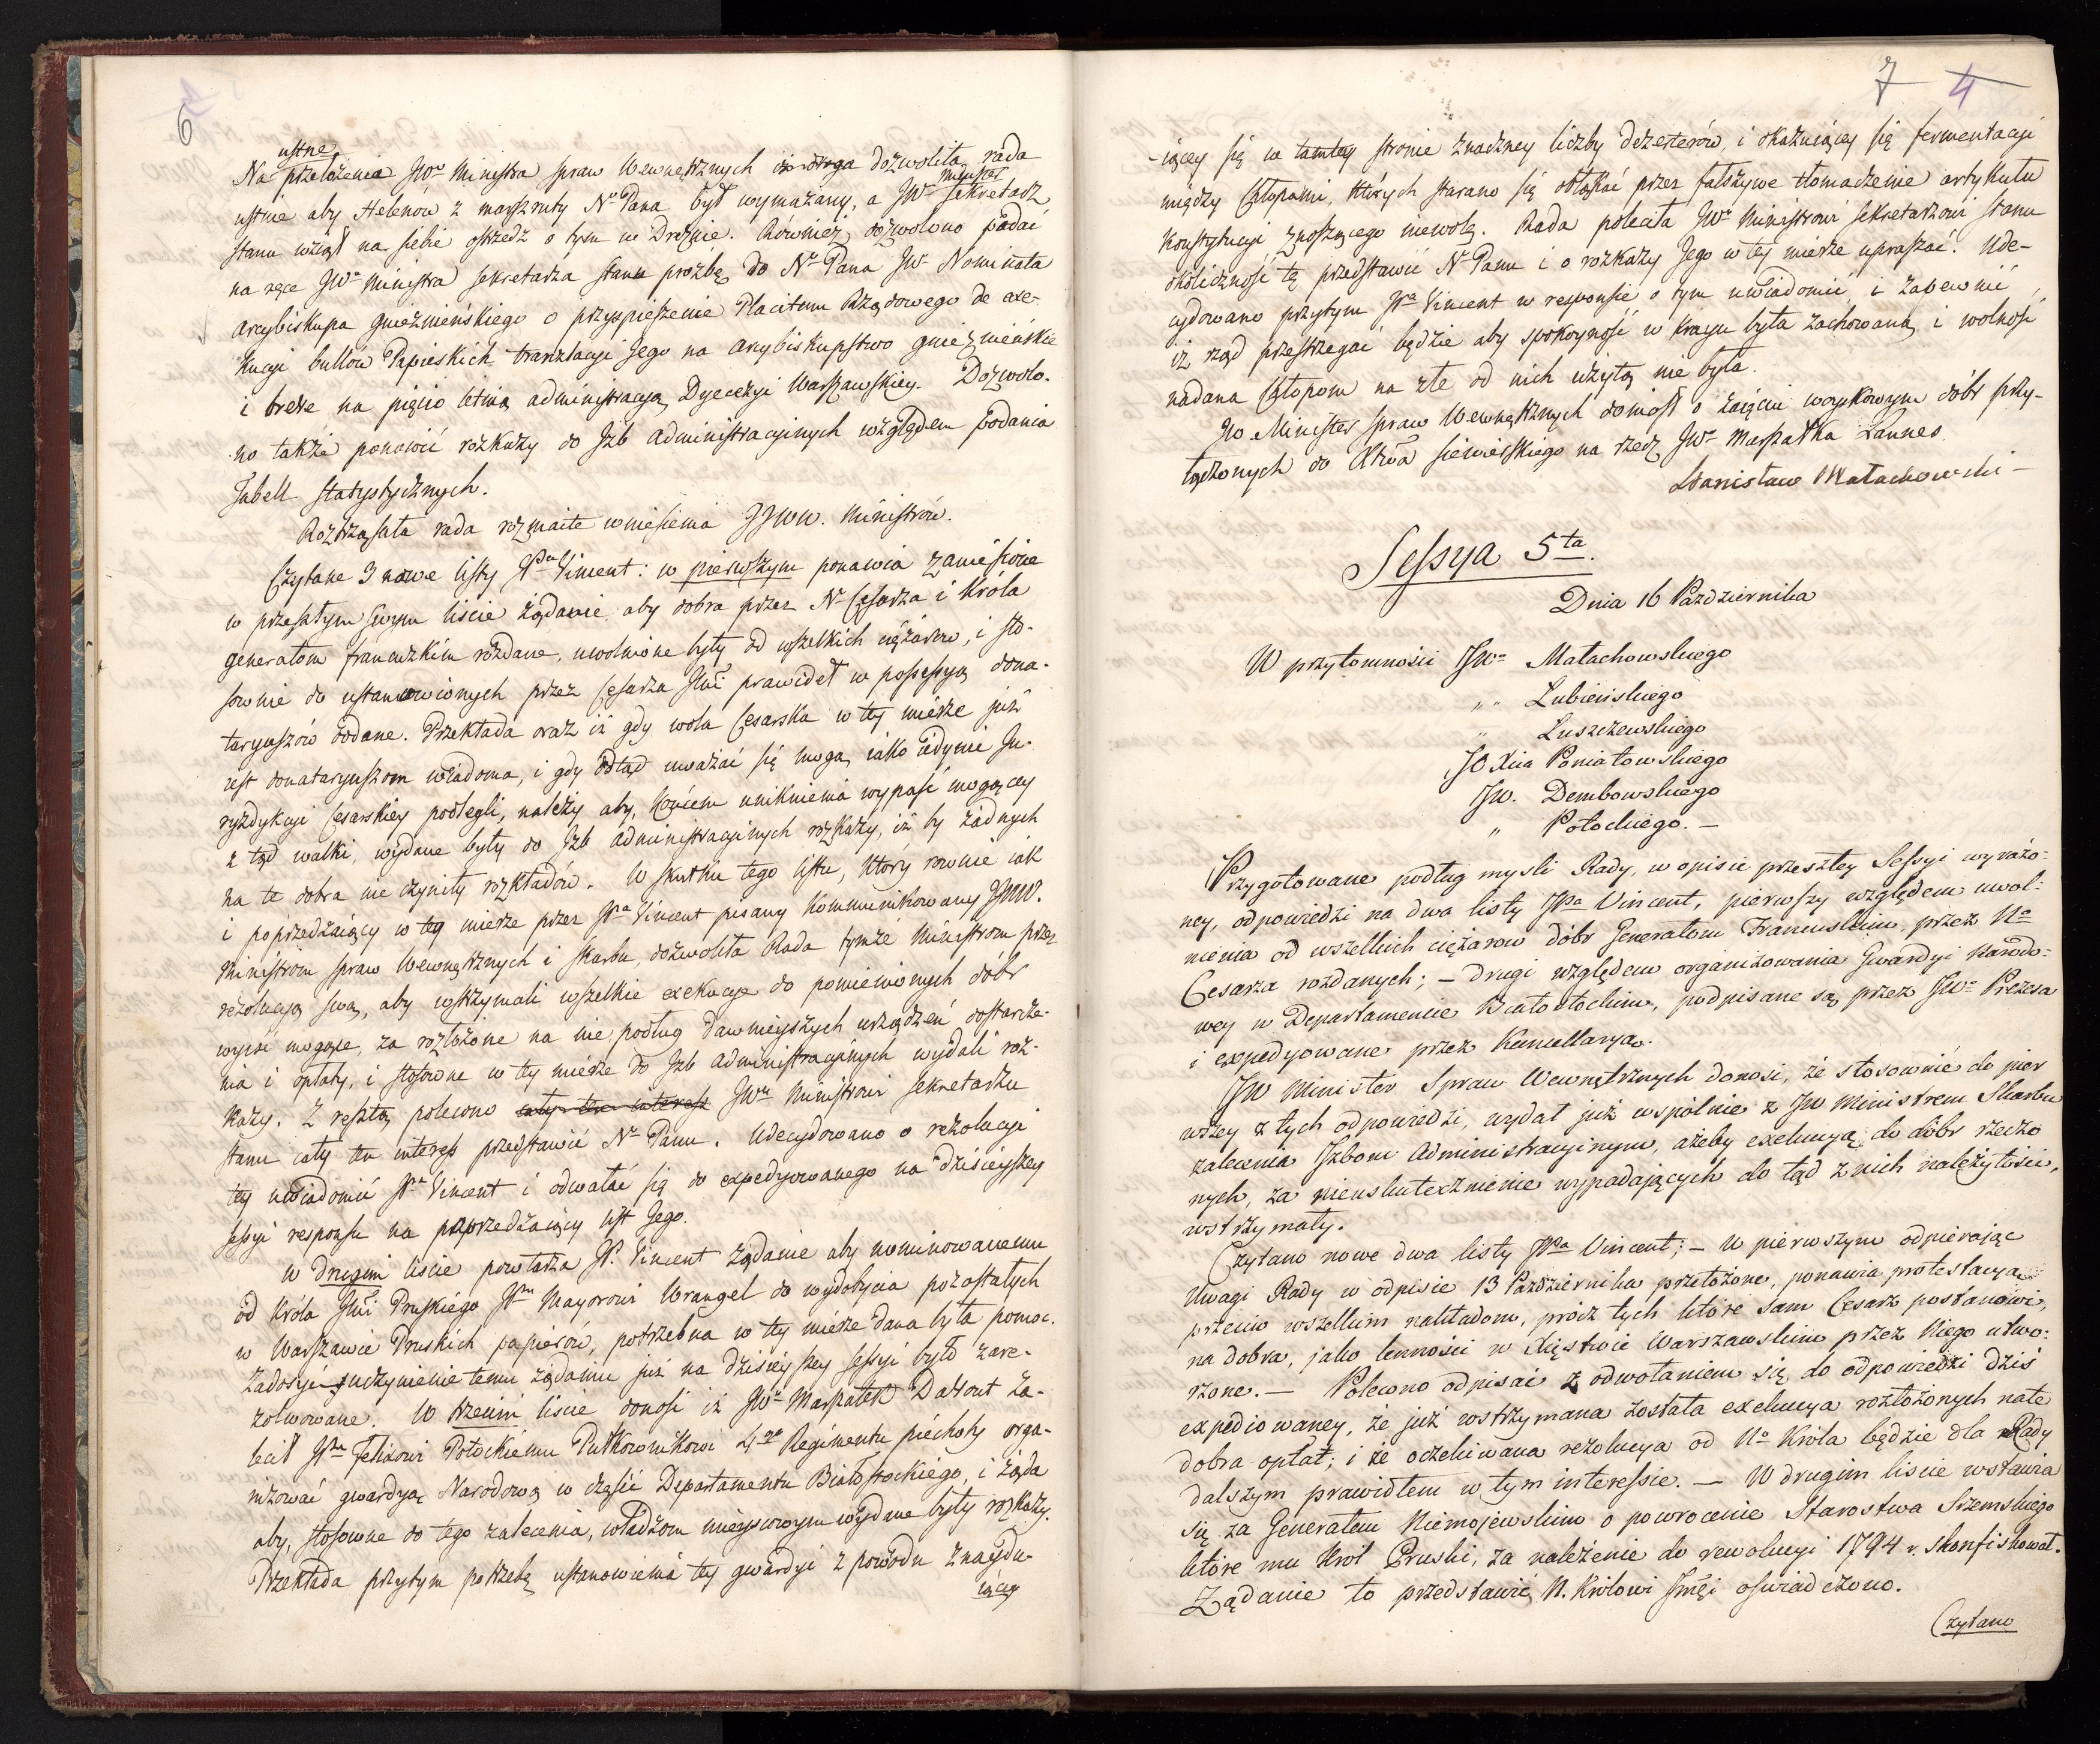 6
ustne
Na przełożenia JWo Ministra spraw Wewnętrznych dozwoliła rada
Minister
ustnie aby Helenów z marszruty No Pana był wymazany, a JW Sekretarz
stanu wziął na siebie ostrzedz o tym w Dreźnie. Również dozwolono podać
na ręce JWo Ministra Sekretarza Stanu prożbę do No Pana JW Nominata
Arcybiskupa gnieźnieńskiego o przyspieszenie Placitum Rządowego de exe-
kucyi bullów Papieskich tranzlacyi Jego na Arcybiskupstwo gnieźnieńskie
i breve na pięcio letnią administracyą Dyecezyi Warszawskiey. Dozwolo-
no także ponowić rozkazy do Izb Administracyinych względem podania
Tabell statystycznych.
Roztrząsała rada rozmaite wniesienia JJWW. Ministrów.
Czytane 3 nowe listy JPa Vincent: w pierwszym ponawia zamieszczone
w przeszłym swym liście żądanie aby dobra przez No Cesarza i Króla
generałom francuzkim rozdane, uwolnione były od wszelkich ciężarów, i sto-
sownie do ustanowionych przez Cesarza Jmci prawideł w possessyą dona-
taryuszów oddane. Przekłada oraz iż gdy wola Cesarska w tey mierze już
iest donataryuszom wiadoma, i gdy odtąd uważać się mogą iako iedynie Ju-
ryzdykcyi Cesarskiey podlegli, należy aby, końcem uniknienia wypaść mogącey
z tąd walki, wydane były do Izb administracyinych rozkazy, iż by żadnych
na te dobra nie czyniły rozkładów. W skutku tego listu, który rownie iak
i poprzedzaiący w tey mierze przez JPa Vincent pisany kommunikowany JJWW.
Ministrom spraw Wewnętrznych i skarbu, dozwoliła Rada tymże Ministrom przez
rezolucyą swą, aby wstrzymali wszelkie exekucye do pomienionych dóbr
wyiść mogące, za rozłożone na nie podług dawnieyszych urządzeń dostarcze-
nia i opłaty, i stosowne w tey mierze do Izb Administracyinych wydali roz-
kazy. Z resztą polecono cały ten interess JWu Ministrowi Sekretarzu
stanu cały ten interess przedstawić No Panu. Udecydowano o rezolucyi
tey uwiadomić JPa Vincent i odwołać się do expedyowanego na dzisieyszey
sessyi responsu na poprzedzaiący list Jego.
W drugim liście powtarza JP. Vincent żądanie aby nominowanemu
od Króla Jmci Pruskiego JPu Mayorowi Wrangel do wydobycia pozostałych
w Warszawie Pruskich papierów, potrzebna w tey mierze dana była pomoc.
Zadosyć uczynienie temu żądaniu już na dzisieyszey sessyi było zare-
zolwowane. W trzecim liście donosi iż JWo Marszałek Davout za-
lecił JPu Felixowi Potockiemu Pułkownikowi 4go Regimentu piechoty orga-
nizować gwardyą Narodową w części Departamentu Białostockiego, i żąda
aby, stosowne do tego zalecenia, władzom mieyscowym wydane były rozkazy.
Przekłada przytym potrzebę ustanowienia tey gwardyi z powodu znaydu-
iącey
7 4
-iącey się w tamtey stronie znaczney liczby dezerterów, i okazuiącey się fermentacyi
między Chłopami, których starano się obłąkać przez fałszywe tłomaczenie artykułu
Konstytucyi znoszącego niewolą. Rada poleciła JWo Ministrowi Sekretarzowi Stanu
okoliczność tę przedstawić No Panu i o rozkazy Jego w tey mierze upraszać. Ude-
cydowano przytym JPa Vincent w responsie o tym uwiadomić, i zapewnić,
iż rząd przestrzegać będzie aby spokoyność w Kraju była zachowaną, i wolność
nadana Chłopom na złe od nich użytą nie była.
JW Minister spraw Wewnętrznych doniosł o zaięciu woyskowym dóbr przy-
łączonych do Xtwa siewierskiego na rzecz JWo Marszałka Lannes.
Stanisław Małachowski –
Sessya 5ta.
Dnia 16 Października
W przytomności JWo Małachowskiego
„ „ Łubieńskiego
„ Łuszczewskiego
JO Xcia Poniatowskiego
JW. Dembowskiego
„ Potockiego. –
Przygotowane podług mysli Rady, w opisie przeszłey Sessyi wyrażo-
ney, odpowiedzi na dwa listy JPa Vincent, pierwszy względem uwol-
nienia od wszelkich ciężarow dóbr Generałom Francuskim przez No
Cesarza rozdanych; – drugi względem organizowania Gwardyi Narodo-
wey w Departamencie Białostockim, podpisane są przez JWo Prezesa
i expedyowane przez Kancellarya.
JW Minister Spraw Wewnętrznych donosi, że stosownie do pier
wszey z tych odpowiedzi, wydał już wspólnie z JW Ministrem Skarbu
zalecenia Izbom Administracyinym, ażeby exekucyą do dóbr rzeczo
nych, za nieuskutecznienie wypadających do tąd z nich należytości,
wstrzymały.
Czytano nowe dwa listy JPa Vincent; – w pierwszym odpierając
Uwagi Rady w odpisie 13 Października przełożone, ponawia protestacyą
przeciw wszelkim nakładom, prócz tych które sam Cesarz postanowi,
na dobra, jako lenności w Xięstwie Warszawskim przez Niego utwo-
rzone. – Polecono odpisać z odwołaniem się do odpowiedzi dziś
expediowaney, że już wstrzymana została exekucya rozłożonych na te
dobra opłat; i że oczekiwana rezolucya od No Króla będzie dla Rady
dalszym prawidłem w tym interessie. – W drugim liscie wstawia
się za Generałem Niemojewskim o powrocenie Starostwa Śremskiego
które mu Król Pruski, za należenie do rewolucyi 1794 r. skonfiskował.
Żądanie to przedstawić N. Królowi Jmci oswiadczono.
Czytano